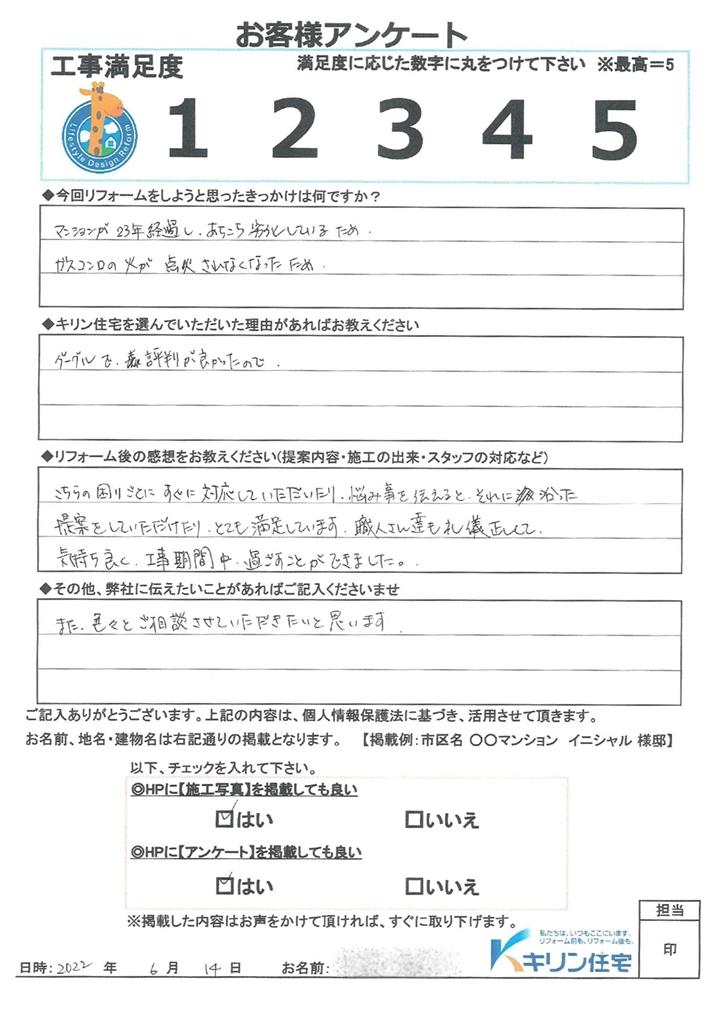 お客様アンケート
工事満足度
満足度に応じた数字に丸をつけて下さい ※最高=5
Lifestyle Design Reform
1 2 3 4 5
◆今回リフォームをしようと思ったきっかけは何ですか?
マンションが23年経過し、あちこち劣化しているため.
ガスコンロの火が点火されなくなったため.
◆キリン住宅を選んでいただいた理由があればお教えください
グーグルで、評判が良かったので.
◆リフォーム後の感想をお教えください(提案内容・施工の出来・スタッフの対応など)
こちらの困りごとにすぐに対応していただいたり、悩み事を伝えると、それに沿った
提案をしていただけたり、とても満足しています。職人さん達も礼儀正しくて、
気持ち良く、工事期間中、過ごすことができました。
◆その他、弊社に伝えたいことがあればご記入くださいませ
また、色々とご相談させていただきたいと思います
ご記入ありがとうございます。上記の内容は、個人情報保護法に基づき、活用させて頂きます。
お名前、地名・建物名は右記通りの掲載となります。 【掲載例:市区名 〇〇マンション イニシャル 様邸】
以下、チェックを入れて下さい。
◎HPに【施工写真】を掲載しても良い
☑はい □いいえ
◎HPに【アンケート】を掲載しても良い
☑はい □いいえ
※掲載した内容はお声をかけて頂ければ、すぐに取り下げます。
担当
印
私たちは、いつもここにいます。
リフォーム前も、リフォーム後も。
キリン住宅
日時:2022 年 6 月 14 日 お名前: